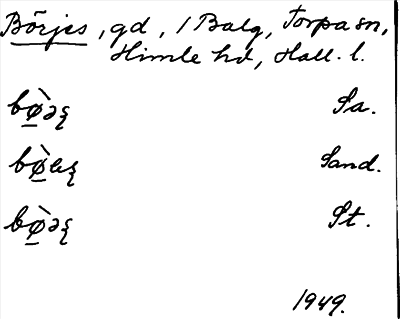 Börjes, gd, 1 Balg, Torpa sn,
Himle hd, Hall. l.
bø̠̀əʂ Sa.
bø̠̀ eʂ Sand.
bø̠̀əʂ St.
1949.